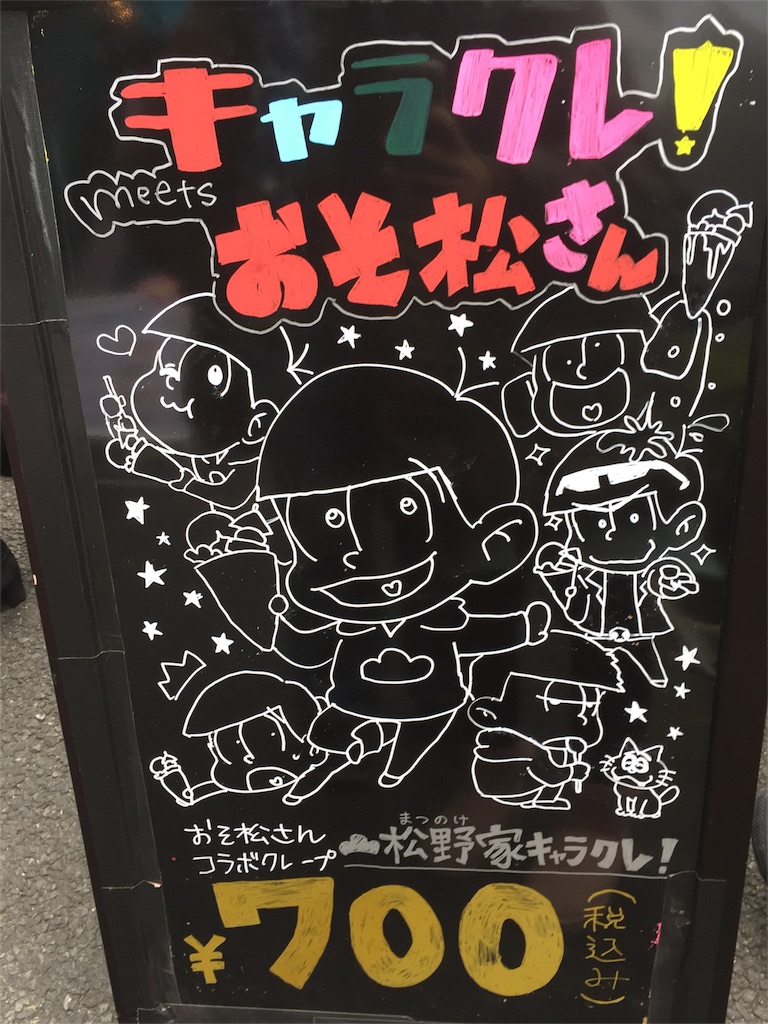 キャラクレ!
meets
おそ松さん
おそ松さん
コラボクレープ
まつのけ
松野家キャラクレ!
¥700
(税込み)